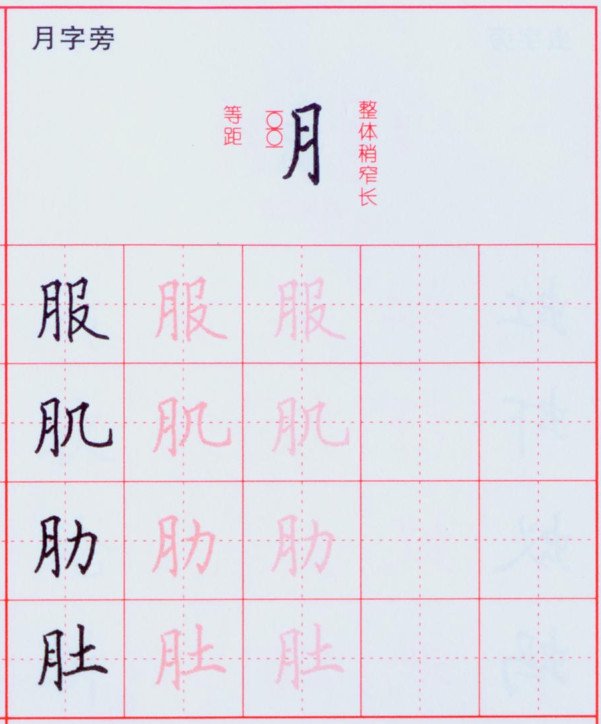 月字旁
等距
月
整体稍窄长
服 服 服
肌 肌 肌
肋 肋 肋
肚 肚 肚